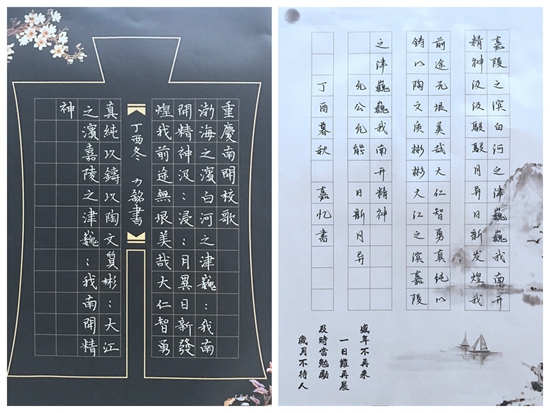 重慶南開校歌
渤海之濱白河之津巍:我南
開精神汲:浸:月異日新發
煌我前途無垠美哉大仁智勇
丁酉冬 力銘書
真純以鑄以陶文質彬:大江
之濱嘉陵之津巍:我南開精
神
嘉陵之滨白河之津巍巍我南开
精神汲汲骎骎月异日新发煌我
前途无垠美哉大仁智勇真纯以
铸以陶文质彬彬大江之滨嘉陵
之津巍巍我南开精神
允公允能 日新月异
丁酉暮秋 嘉忆書
盛年不再来
一日難再晨
及時當勉勵
歲月不待人